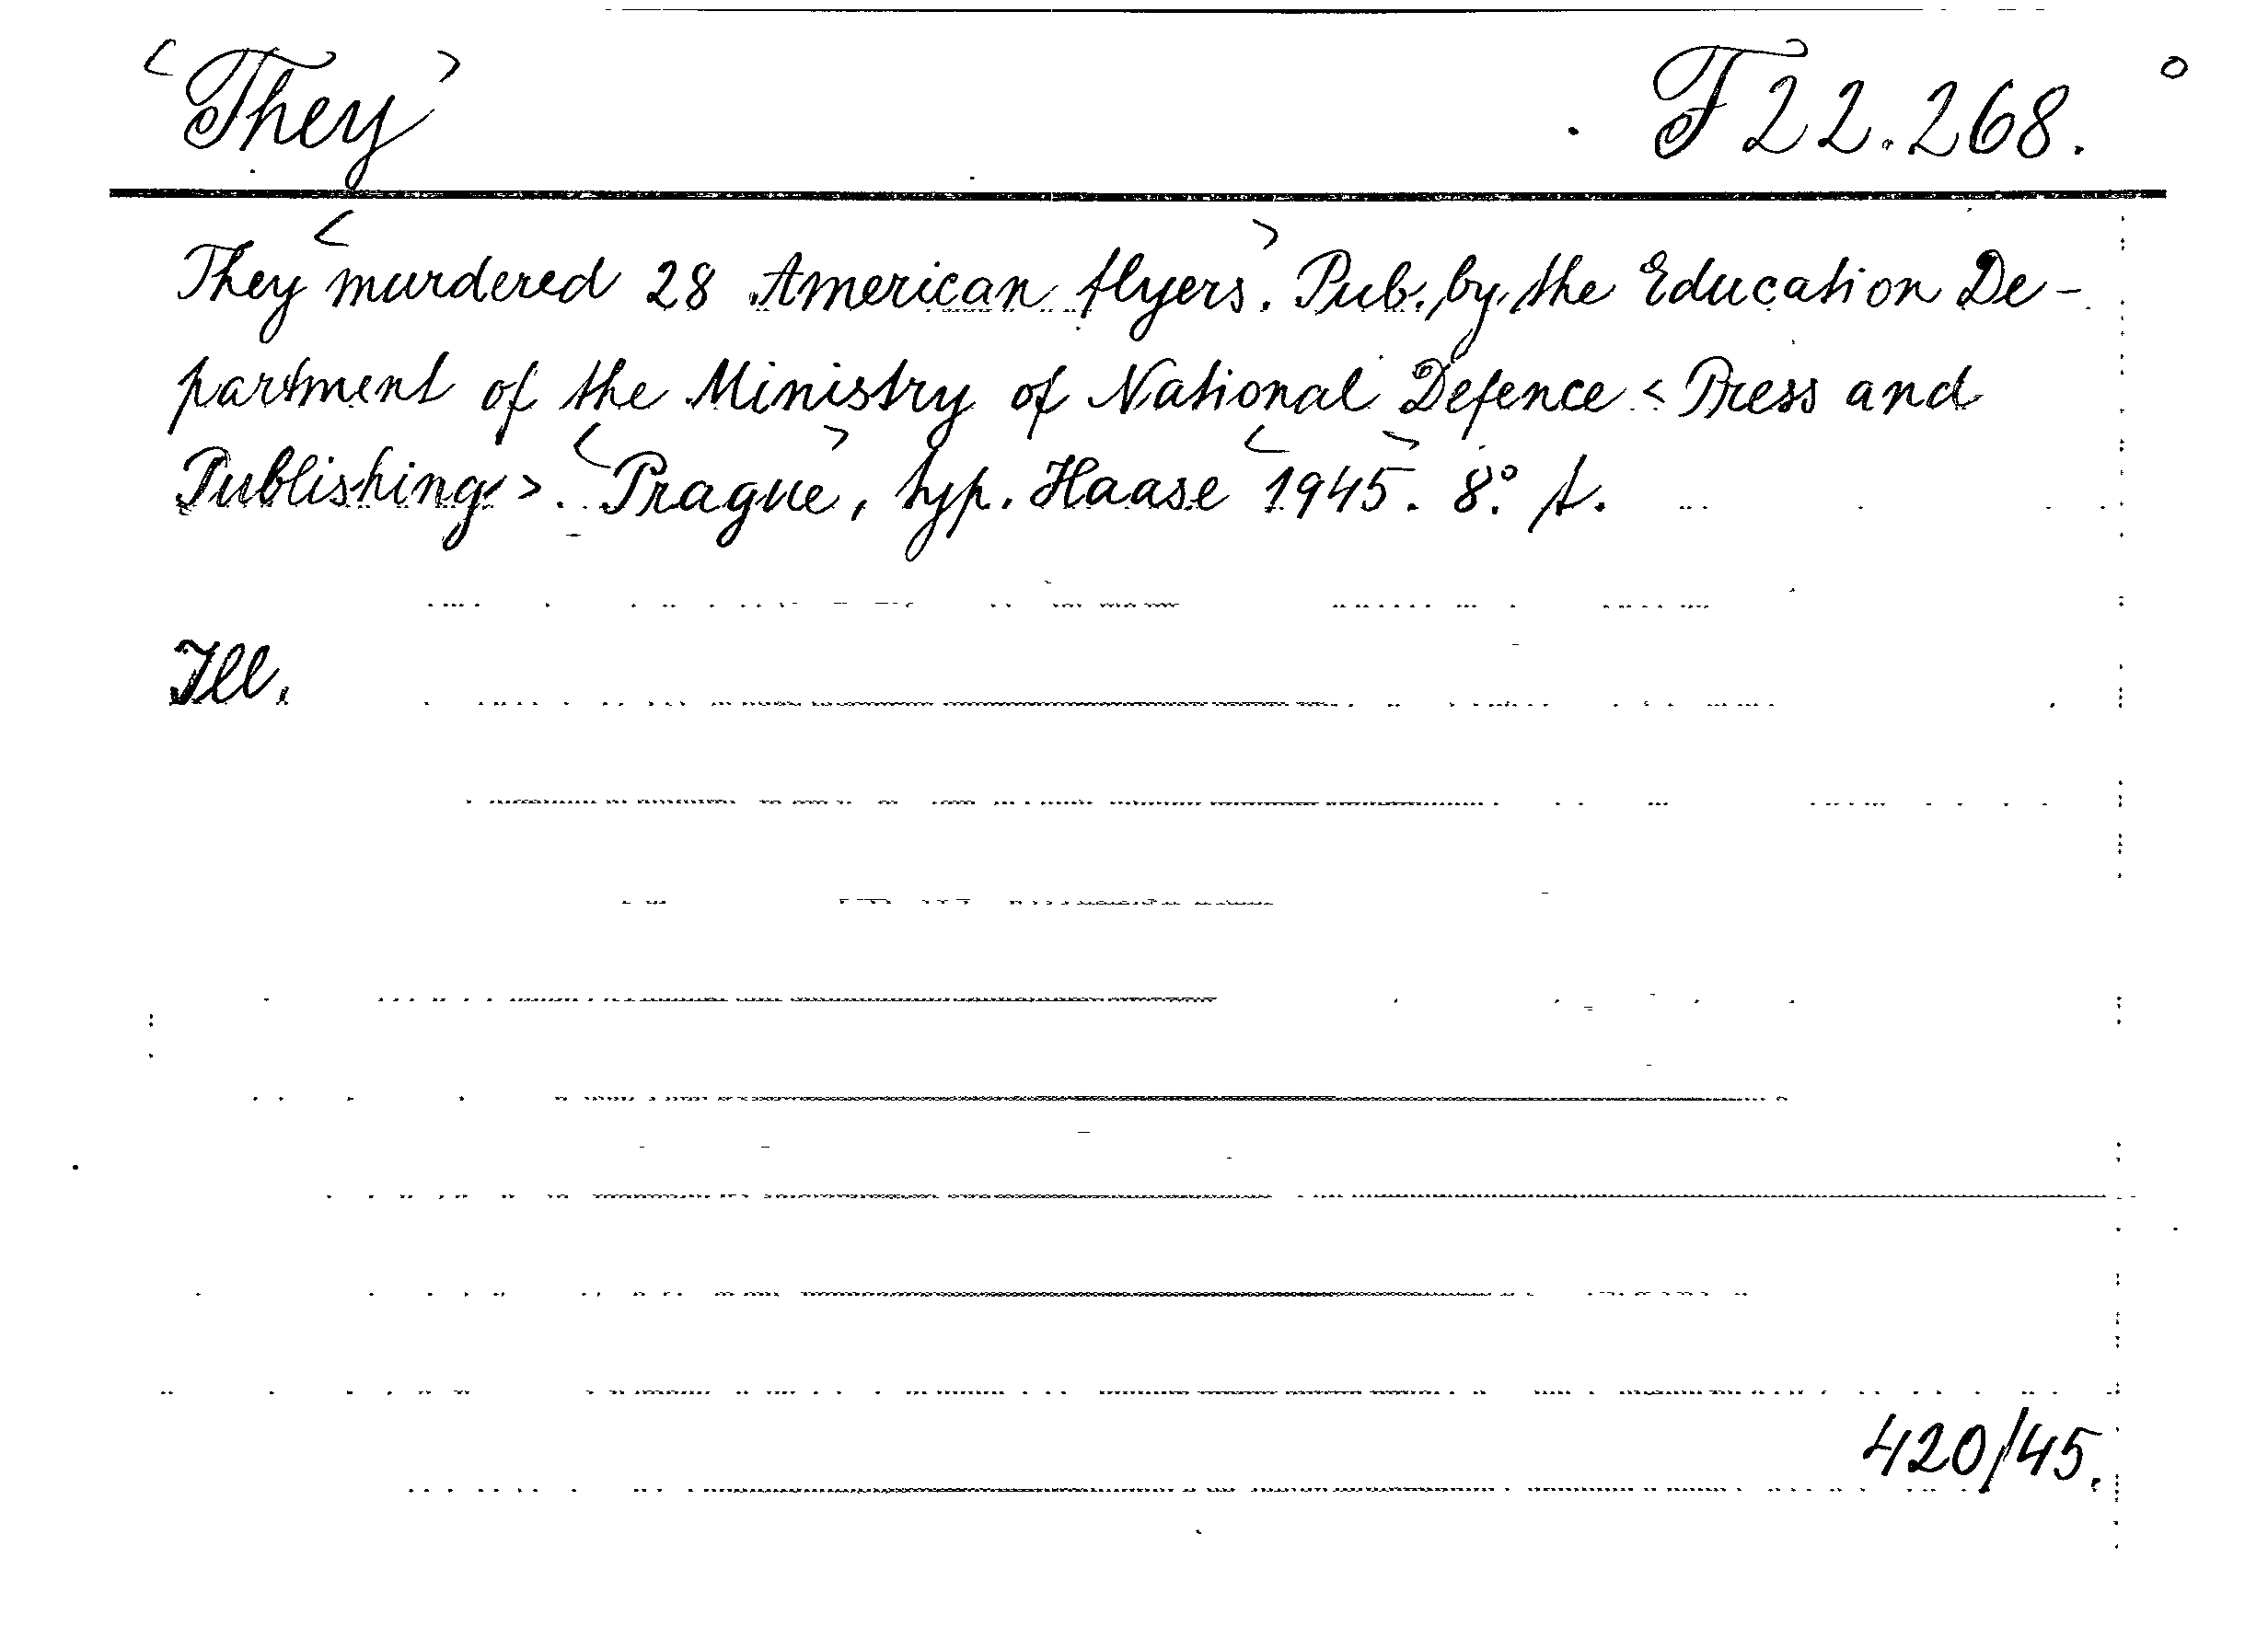 <They> F 22.268.
They <murdered 28 American flyers>. Pub. by the Education De-
partment of the Ministry of National Defence <Press and
Publishing>. <Prague>, typ. Haase <1945>. 8°.
Ill.
420/45.